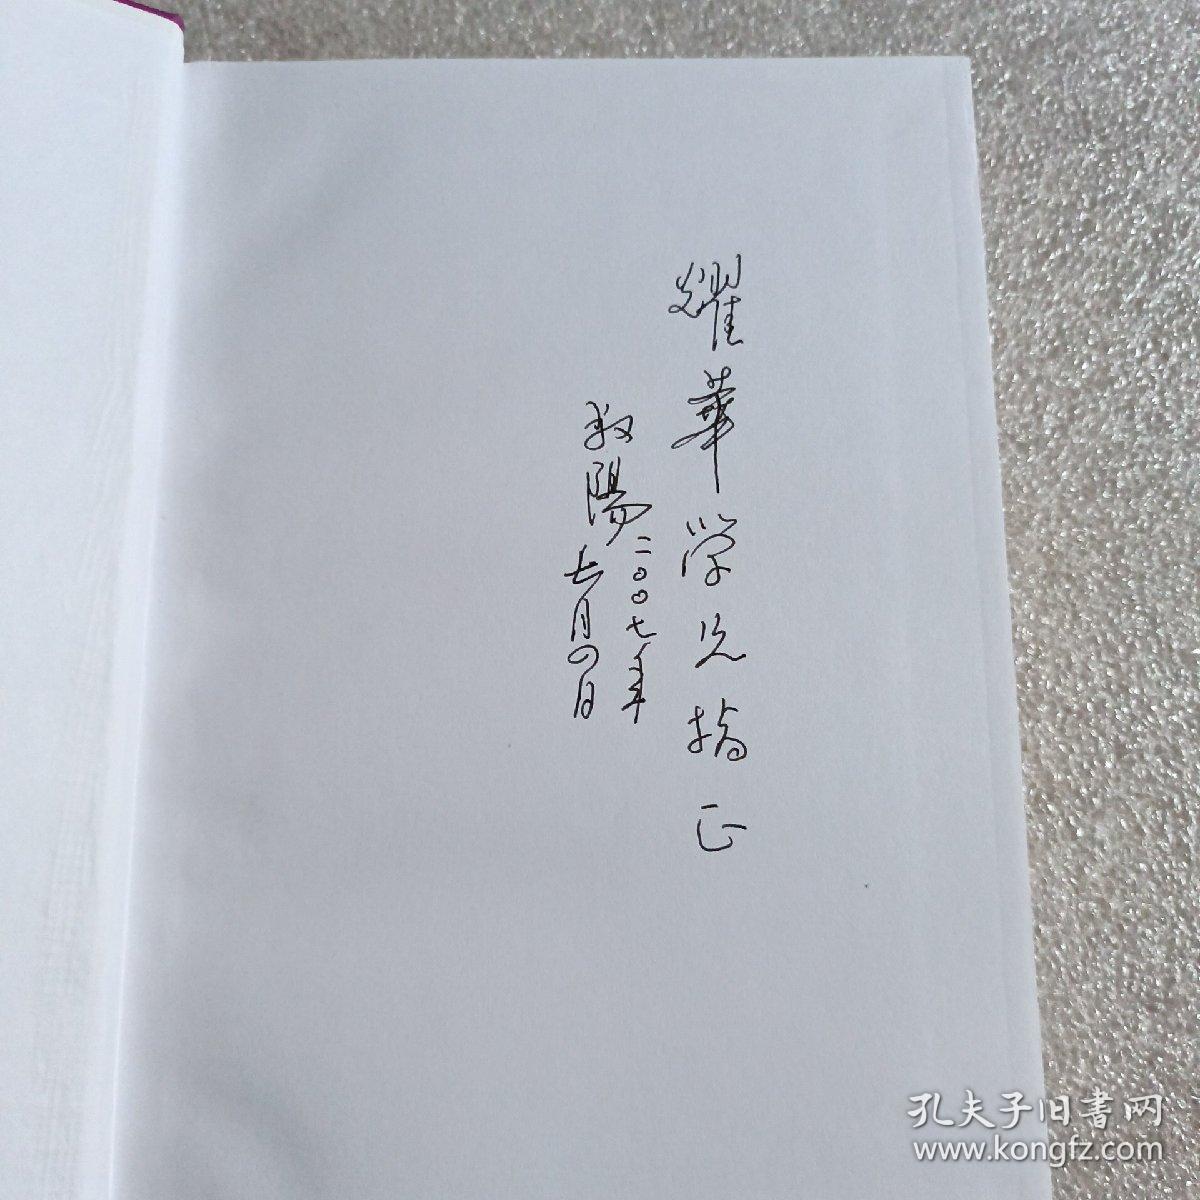 耀華学兄指正
敔陽
二〇〇七年
七月四日
孔夫子旧書网
www.kongfz.com